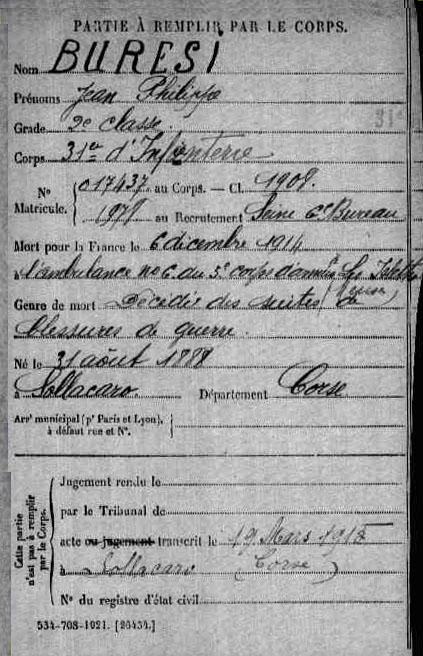 PARTIE À REMPLIR PAR LE CORPS.
Nom BURESI
Prénoms Jean Philippe
Grade 2e classe
31e
Corps 31e d'Infanterie
N° Matricule. { 017437 au Corps. — Cl. 1908.
1978 au Recrutement Seine 6e Bureau
Mort pour la France le 6 décembre 1914
à l'ambulance no 6. du 5e corps d'armée Les Islettes
(Meuse)
Genre de mort Décédé des suites de
blessures de guerre.
Né le 31 août 1888
à Sollacaro. Département Corse
Arrt municipal (pr Paris et Lyon), à défaut rue et N°. {
Cette partie n'est pas à remplir par le Corps.
Jugement rendu le
par le Tribunal de
acte ou jugement transcrit le 19 Mars 1915
à Sollacaro (Corse)
N° du registre d'état civil
534-708-1921. [26434.]